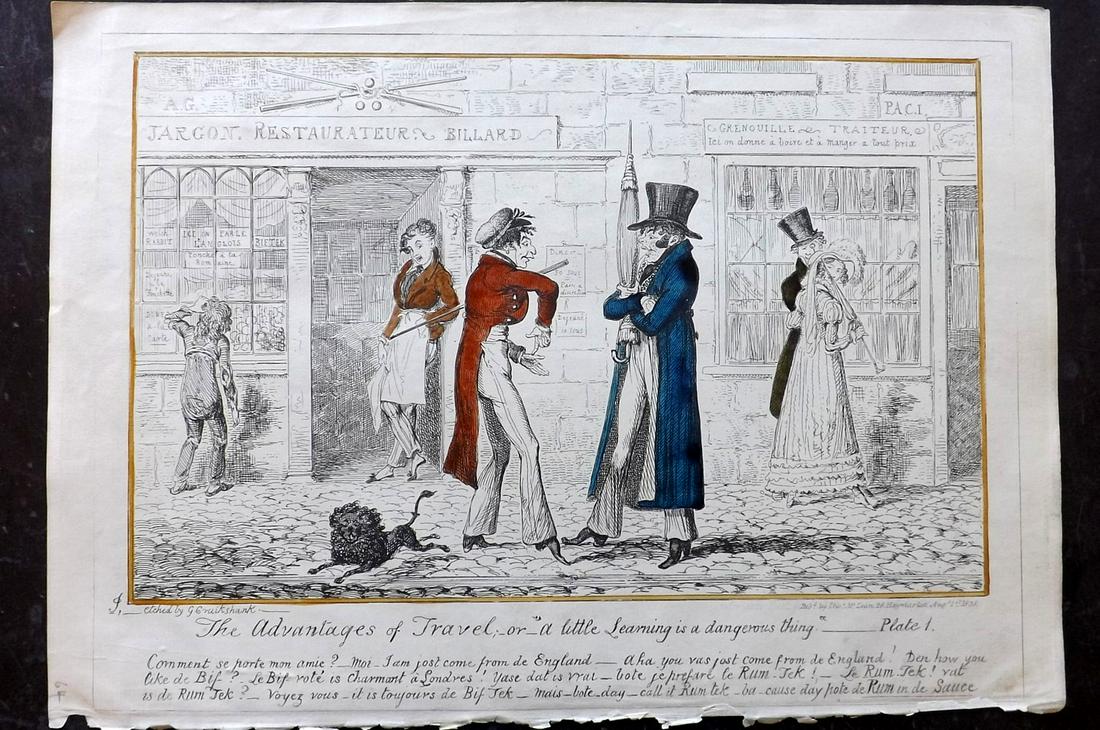 A.G.
JARGON. RESTAURATEUR BILLARD
PACI.
GRENOUILLE TRAITEUR
Ici on donne a boire et a manger a tout prix
WELCH RABBIT
ICI ON PARLE L'ANGLOIS
BIFTEK
Ponche a la Romaine
a la
Carte
etched by G Cruikshank
Pubd. by Thos. McLean 26 Haymarket Augt. 1st
The Advantages of Travel,-or-"a little Learning is a dangerous thing" Plate 1.
Comment se porte mon amie?_Moi_I am jost come from de England_Aha you vas jost come from de England! Den how you
like de Bif?_Le Bif roté is charmant à Londres! Yase dat is vrai_bote je préfaré le Rum-Tek!_Le Rum Tek! vat
is de Rum Tek?_Voyez vous_it is toujours de Bif Tek_mais_bote_day_call it Rum tek_ba-cause day pote de Rum in de Sauce